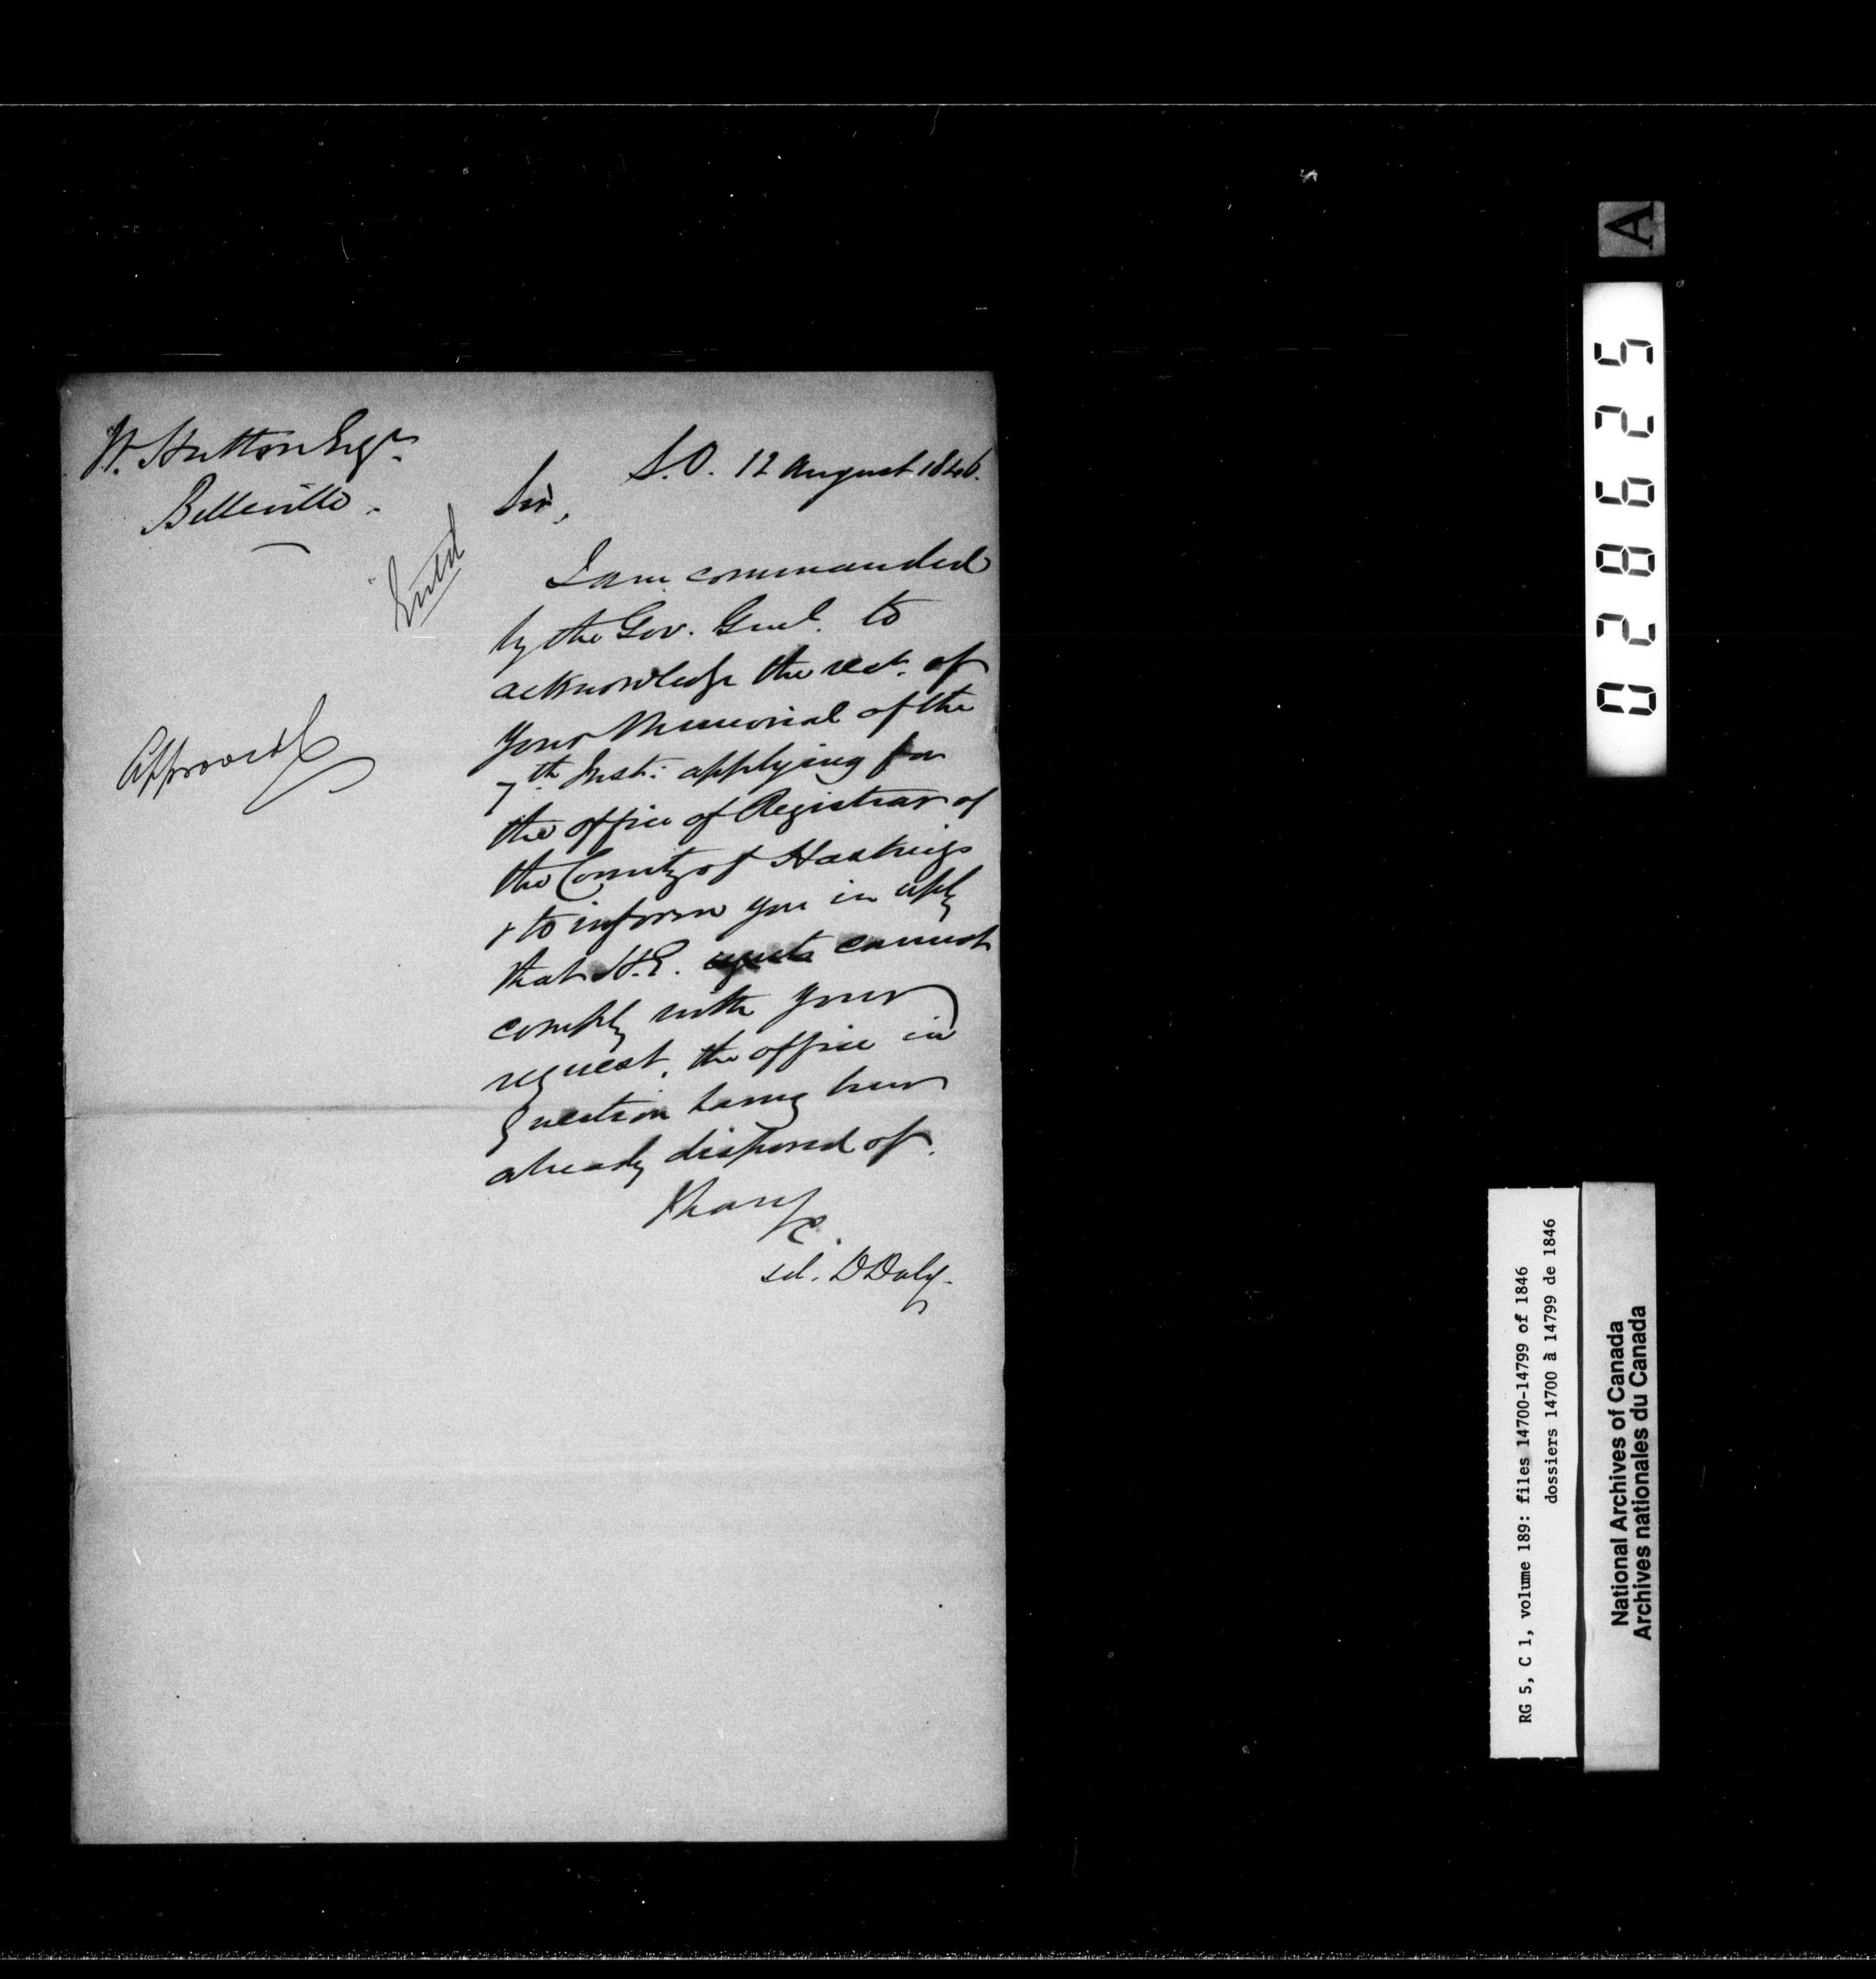 W. Hutton Esqr.
Belleville.
Entd
Approved
S.O. 12 August 1846.
Sir,
I am commanded
by the Gov. Genl. to
acknowledge the rect. of
your Memorial of the
7th Inst: applying for
the office of Registrar of
the County of Hastings
& to inform you in reply
that H.E. cannot
comply with your
request, the office in
question having been
already disposed of.
I have &c.
sd. D Daly.
A
028625
RG 5, C 1, volume 189: files 14700-14799 of 1846
dossiers 14700 à 14799 de 1846
National Archives of Canada
Archives nationales du Canada